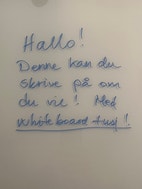 Hallo!
Denne kan du
skrive på om
du vil! Med
whiteboard tusj!